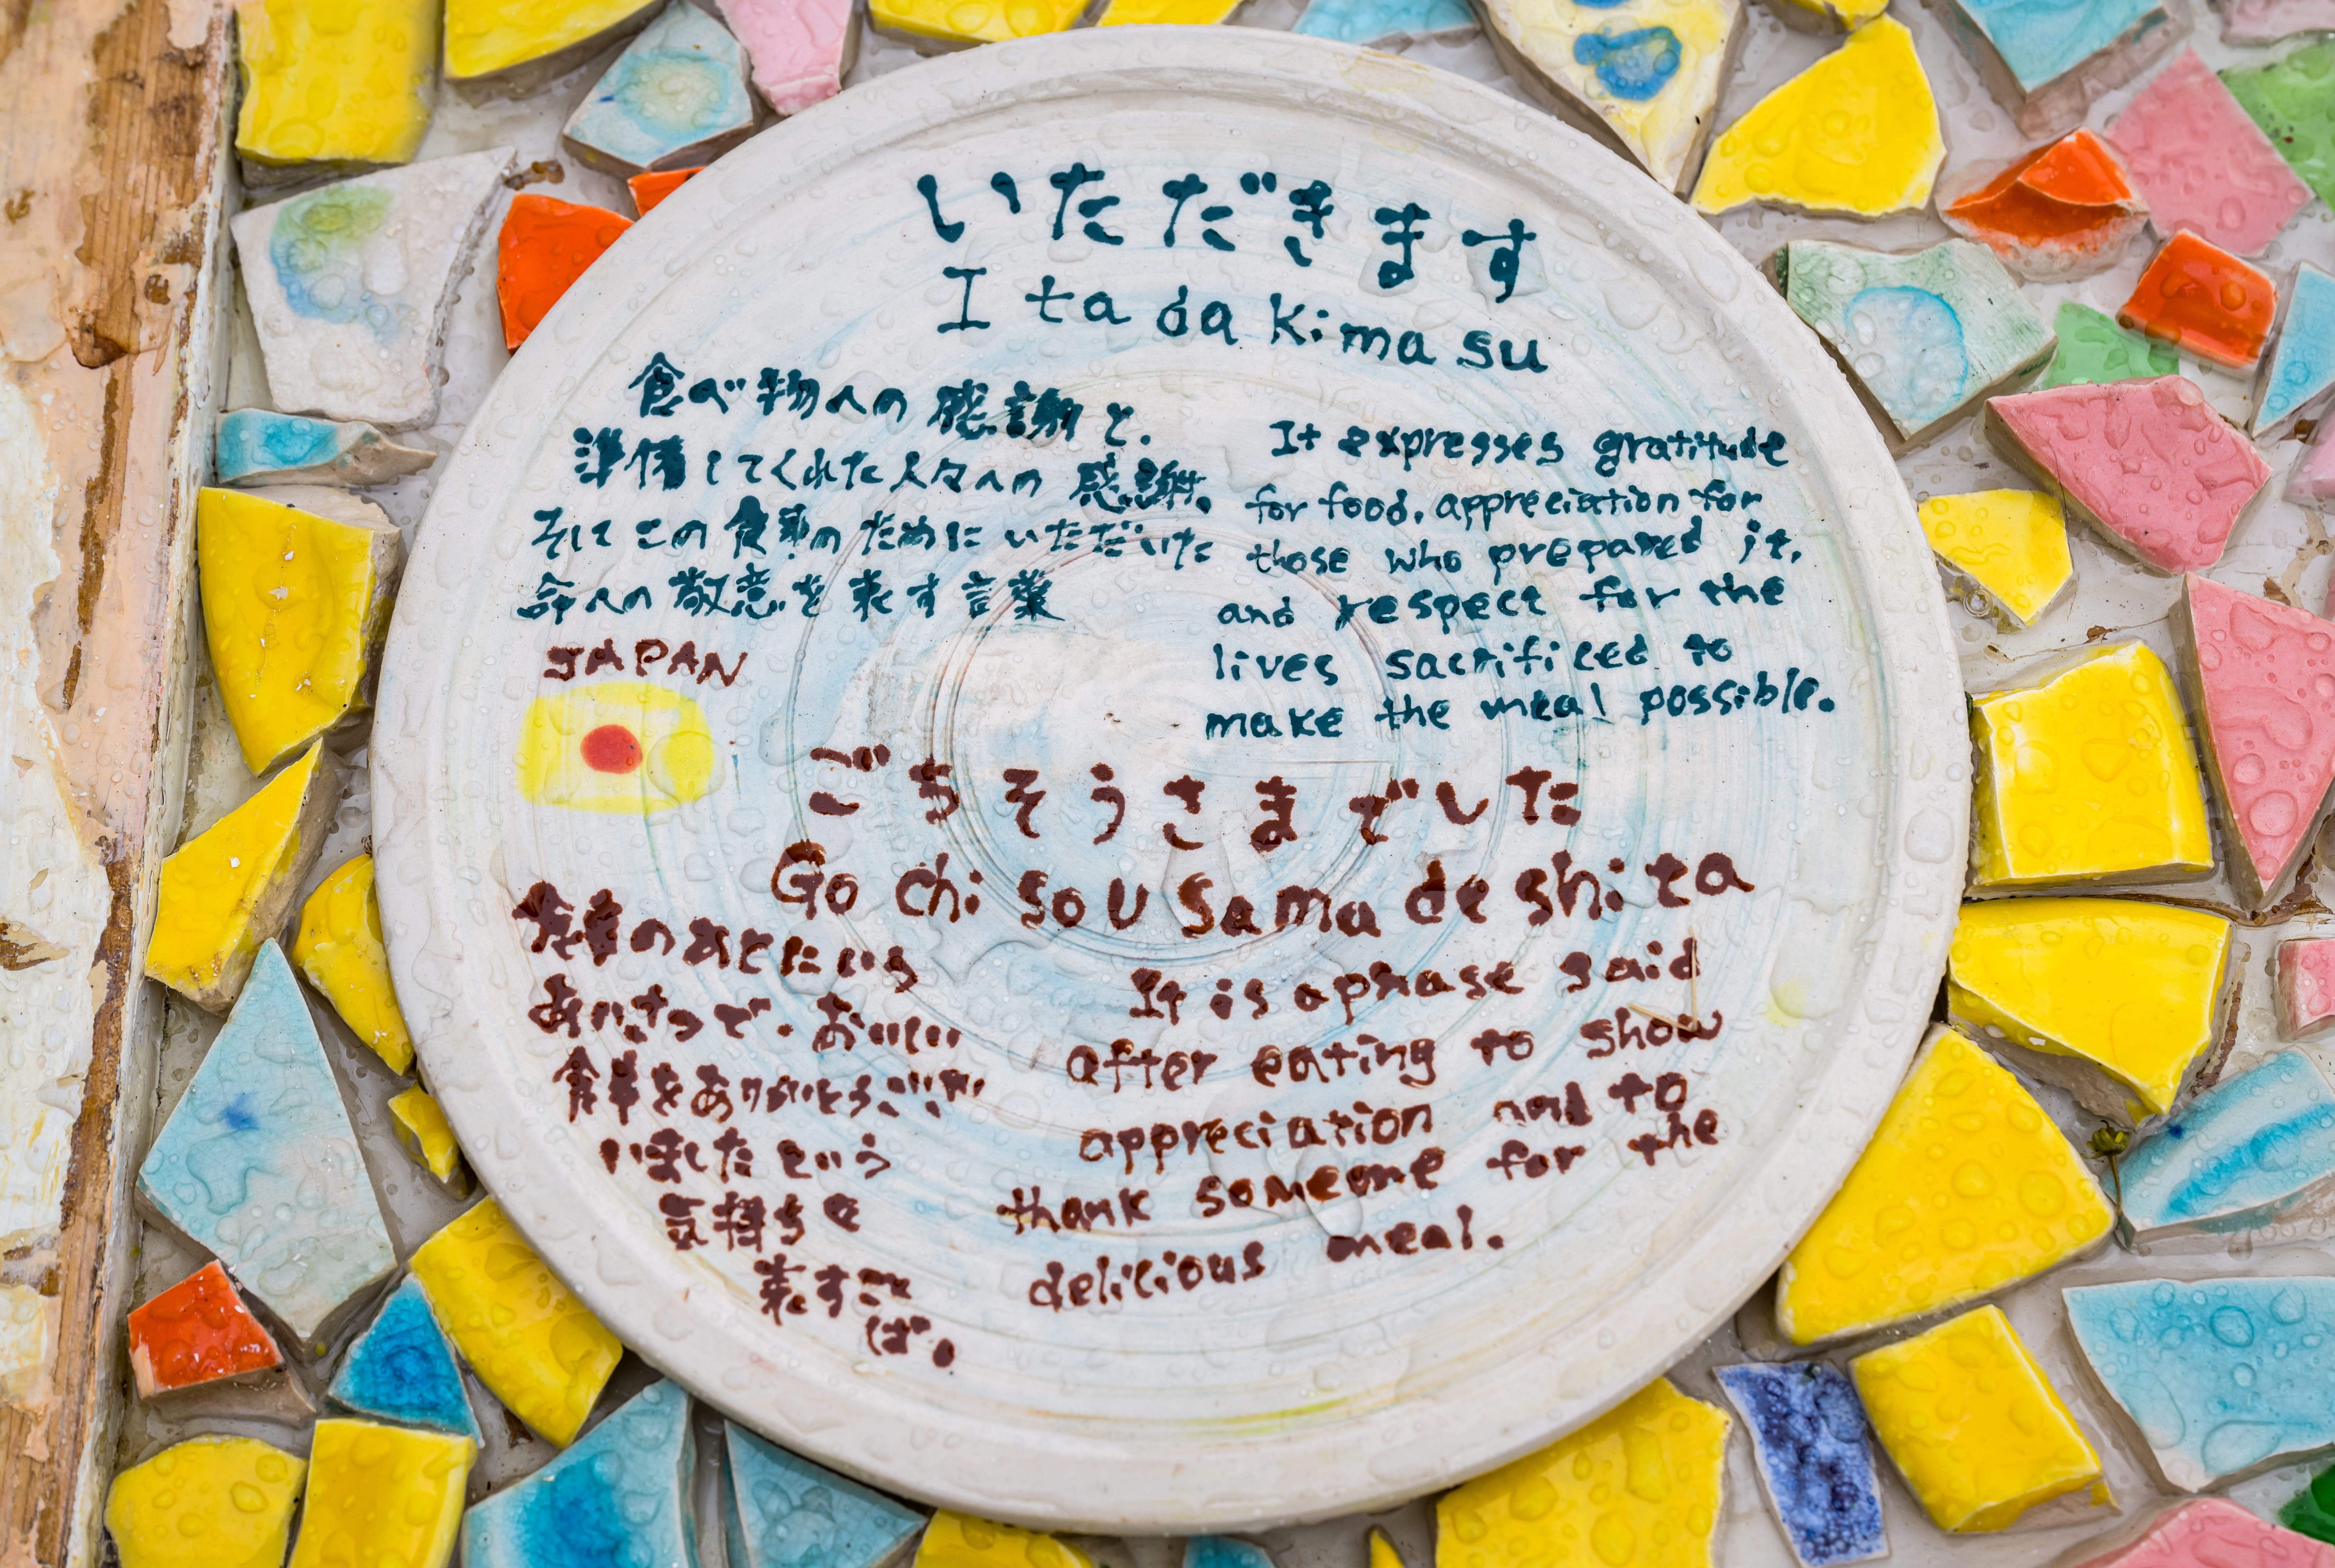 いただきます
I ta da ki ma su
食べ物への感謝と、
準備してくれた人々への感謝、
そしてこの食事のためにいただいた
命への敬意を表す言葉
It expresses gratitude
for food, appreciation for
those who prepared it,
and respect for the
lives sacrificed to
make the meal possible.
JAPAN
ごちそうさまでした
Go chi so u sa ma de shi ta
食事のあとにいう
あいさつで、おいしい
食事をありがとうござ
いましたという
気持ちを
表すこと
ば。
It is a phrase said
after eating to show
appreciation and to
thank someone for the
delicious meal.